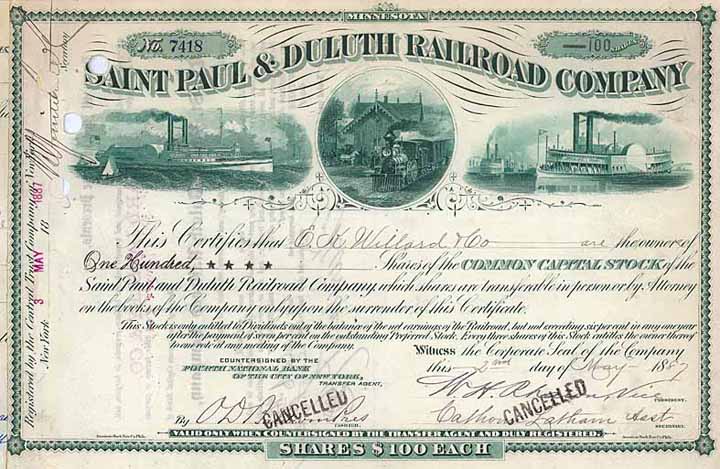 MINNESOTA
No. 7418
100
SAINT PAUL & DULUTH RAILROAD COMPANY
This Certifies that E. K. Willard & Co are the owner of
One Hundred, ★ ★ ★ ★ Shares of the COMMON CAPITAL STOCK of the
Saint Paul and Duluth Railroad Company, which shares are transferable in person or by Attorney
on the books of the Company only upon the surrender of this Certificate.
This Stock is only entitled to Dividends out of the balance of the net earnings of the Railroad, but not exceeding six per cent in any one year
after the payment of seven per cent on the outstanding Preferred Stock. Every three shares of this Stock entitles the owner thereof
to one vote at any meeting of the Company.
COUNTERSIGNED BY THE
FOURTH NATIONAL BANK
OF THE CITY OF NEW YORK,
TRANSFER AGENT,
Witness the Corporate Seal of the Company
this 2nd day of May 1887
By
CASHIER.
CANCELLED
W. H.
PRESIDENT.
CANCELLED
Latham Asst
SECRETARY.
American Bank Note Co. Phila.
VALID ONLY WHEN COUNTERSIGNED BY THE TRANSFER AGENT AND DULY REGISTERED.
American Bank Note Co. Phila.
SHARES $100 EACH
Registered by the Central Trust Company of New York
New York 3 MAY 1887 18